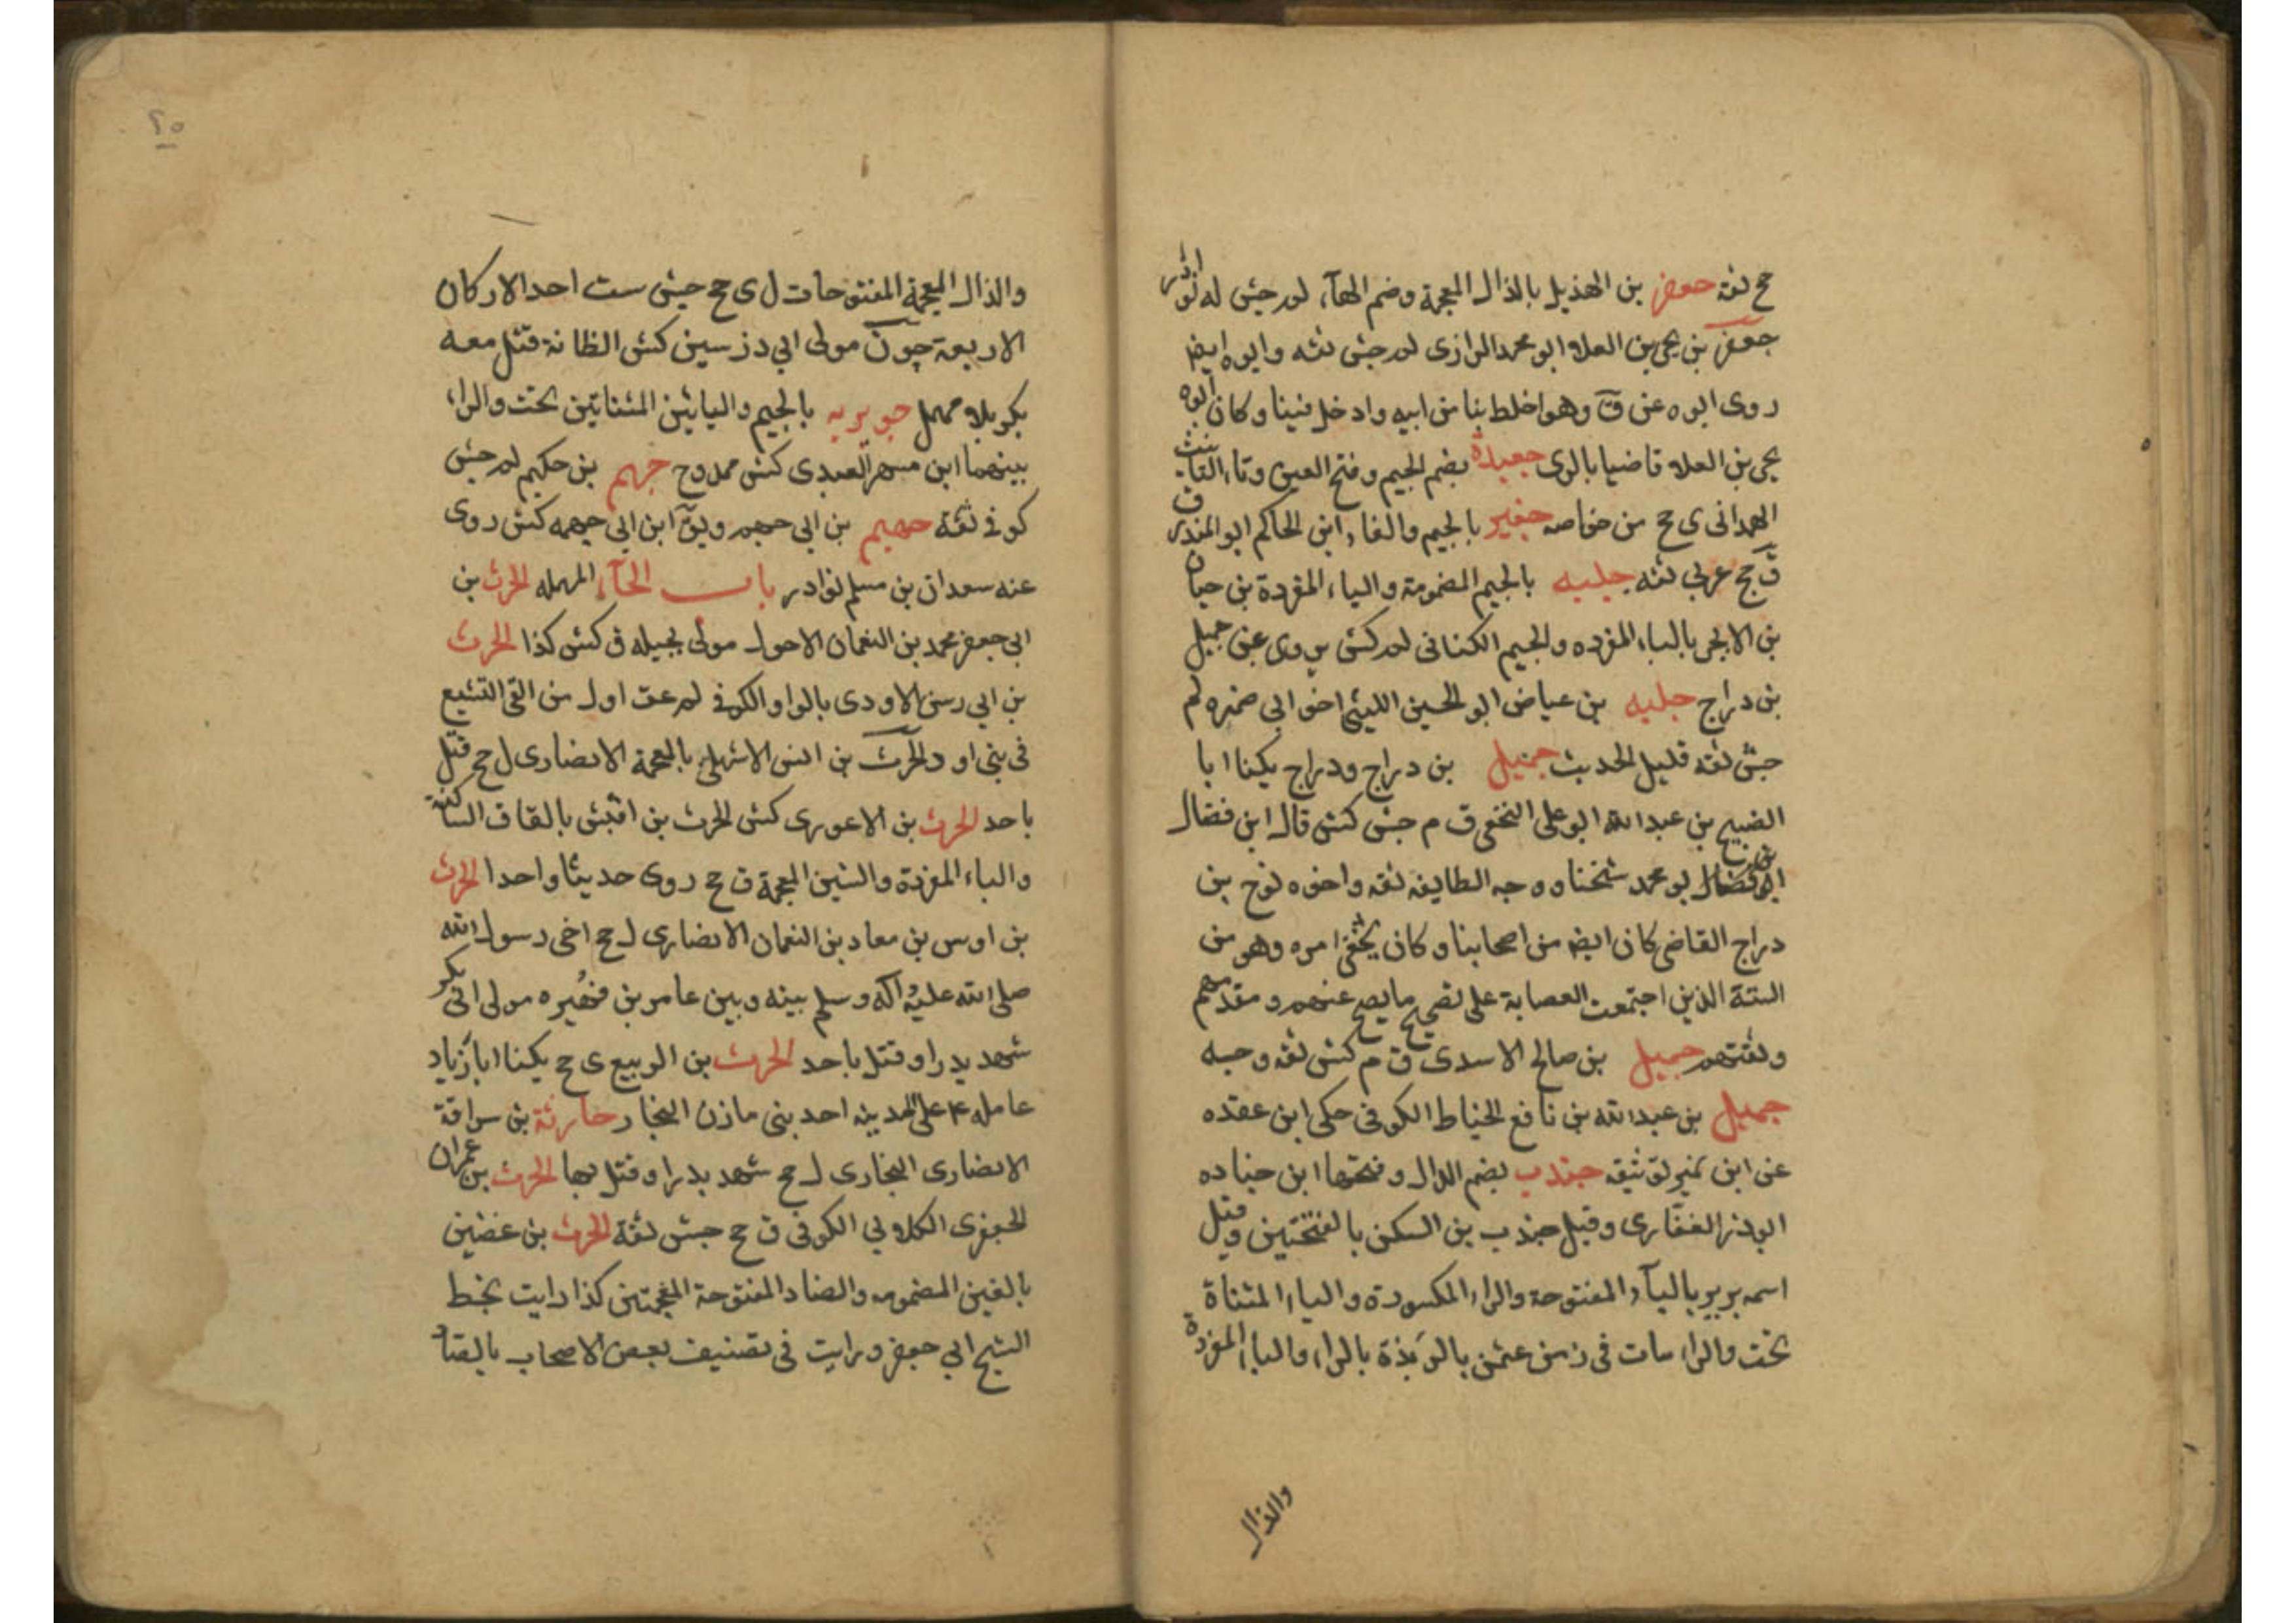 جح ثقة جعفر بن الهذيل بالذال المعجمة وضم الهآء لم جش له نوادر
جعفر بن يحيى بن العلا ابو محمد الرازى لم جش ثقه وابوه ايضا
روى ابوه عن ق وهو اخلط بنا من ابيه وادخل فينا وكان ابوه
يحيى بن العلا قاضيا بالرى جعيدة بضم الجيم وفتح العين وتاء التانيث
الهمدانى ى جح من خواصه جفير بالجيم والفاء ابن الحاكم ابو المنذر
ق جح عربى ثقه جلبه بالجيم المضمومة والباء المفردة بن حيان
بن الابجر بالباء المفرده والجيم الكنانى لم كش يروى عن جميل
بن دراج جلبه بن عياض ابو الحسين الليثى اخو ابى ضمره لم
جش ثقه قليل الحديث جميل بن دراج ودراج يكنا ابا
الصبيح بن عبد الله ابو على النخعى ق م جش كش قال ابن فضال
ابو محمد شخنا ووجه الطايفه ثقه واخوه نوح بن
دراج القاضى كان ايضا من اصحابنا وكان يخفى امره وهو من
الستة الذين اجتمعت العصابة على تصحيح ما يصح عنهم ومقدمهم
وثقتهم جميل بن صالح الاسدى ق م كش ثقه وجه
جميل بن عبد الله بن نافع الخياط الكوفى حكى ابن عقده
عن ابن نمير توثيقه جندب بضم الدال وفتحها ابن جناده
ابو ذر الغفارى وقيل جندب بن السكن بالفتحتين وقيل
اسمه برير بالبآء المفتوحة والراء المكسورة والياء المثناة
تحت والراء مات فى زمن عثمن بالرَبذة بالراء والباء المفردة
والذال
٢٥
والذال المعجمة المفتوحات ل ى جح جش ست احد الاركان
الاربعة جون مولى ابى ذر سين كش الظانة قتل معه
بكربلا مهمل جويريه بالجيم واليائين المثناتين تحت والراء
بينهما ابن مسهر العبدى كش ممدوح جهم بن حكيم لم جش
كوفى ثقة جهيم بن ابى جهم ويق ابن ابى جهمه كش روى
عنه سعدان بن مسلم نوادر باب الحآء المهمله الحرث بن
ابى جعفر محمد بن النعمان الاحول مولى بجيله ق كش كذا الحرث
بن ابى رسن الاودى بالواو الكوفى لم عق اول من القى التشيع
فى بنى اود الحرث بن انس الاشهلى بالمعجمة الانصارى ل جح قتل
باحد الحرث بن الاعور ى كش الحرث بن اقبش بالقاف الساكنة
والباء المفردة والشين المعجمة ق جح روى حديثا واحدا الحرث
بن اوس بن معاد بن النعمان الانصارى ل جح اخى رسول الله
صلى الله عليه وآله وسلم بينه وبين عامر بن فهُيره مولى ابى بكر
شهد بدرا وقتل باحد الحرث بن الربيع ى جح يكنا ابا زياد
عامله ع على المدينه احد بنى مازن النجار حارثة بن سراقة
الانصارى النجارى ل جح شهد بدرا وقتل بها الحرث بن عمران
الجعفرى الكلابى الكوفى ق جح جش ثقة الحرث بن غضين
بالغين المضمومه والضاد المفتوحة المعجمتين كذا رايت بخط
الشيخ ابى جعفر ورايت فى تصنيف بعض الاصحاب بالصاد